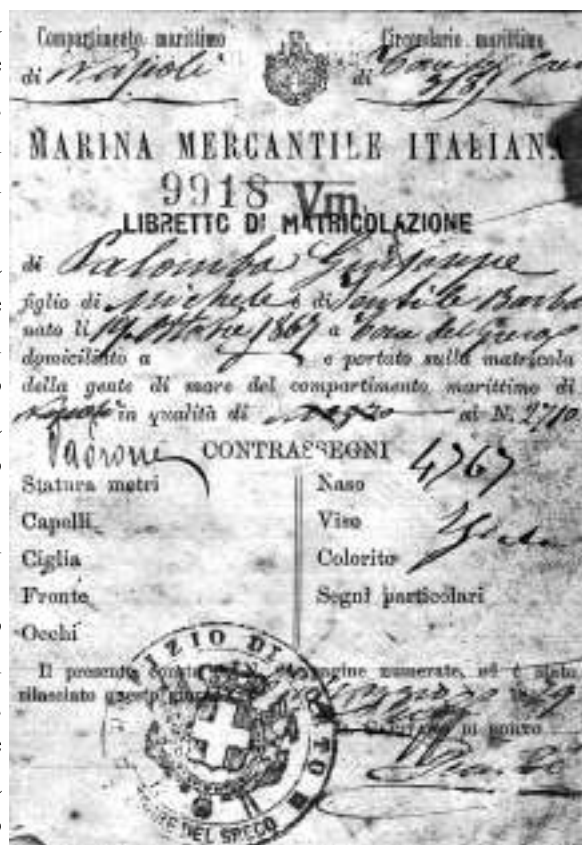 Compartimento marittimo
Circondario marittimo
di Napoli
di
MARINA MERCANTILE ITALIANA
9918 Vm.
LIBRETTO DI MATRICOLAZIONE
di Palomba Giuseppe
figlio di Michele e di Gentile Barba
nato li 19 Ottobre 1867 a Torre del Greco
domiciliato a e portato sulla matricola
della gente di mare del compartimento marittimo di
Napoli in qualità di mozzo al N. 2710
Padrone CONTRASSEGNI 4767
Statura metri
Naso
Capelli
Viso
Ciglia
Colorito
Fronte
Segni particolari
Occhi
Il presente consta di pagine numerate, ed è stato
rilasciato questo giorno
di porto
TORRE DEL GRECO